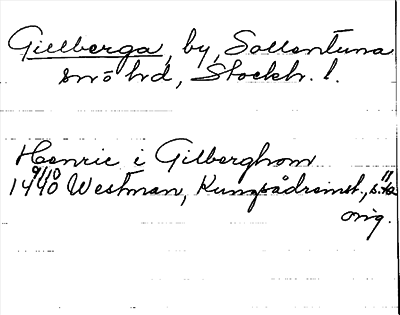 Gillberga, by, Sollentuna
snö hd, Stockh. l.
Henric i Gilberghom
9/10
1440 Westman, Kungsådreinst., s. 11a
orig.